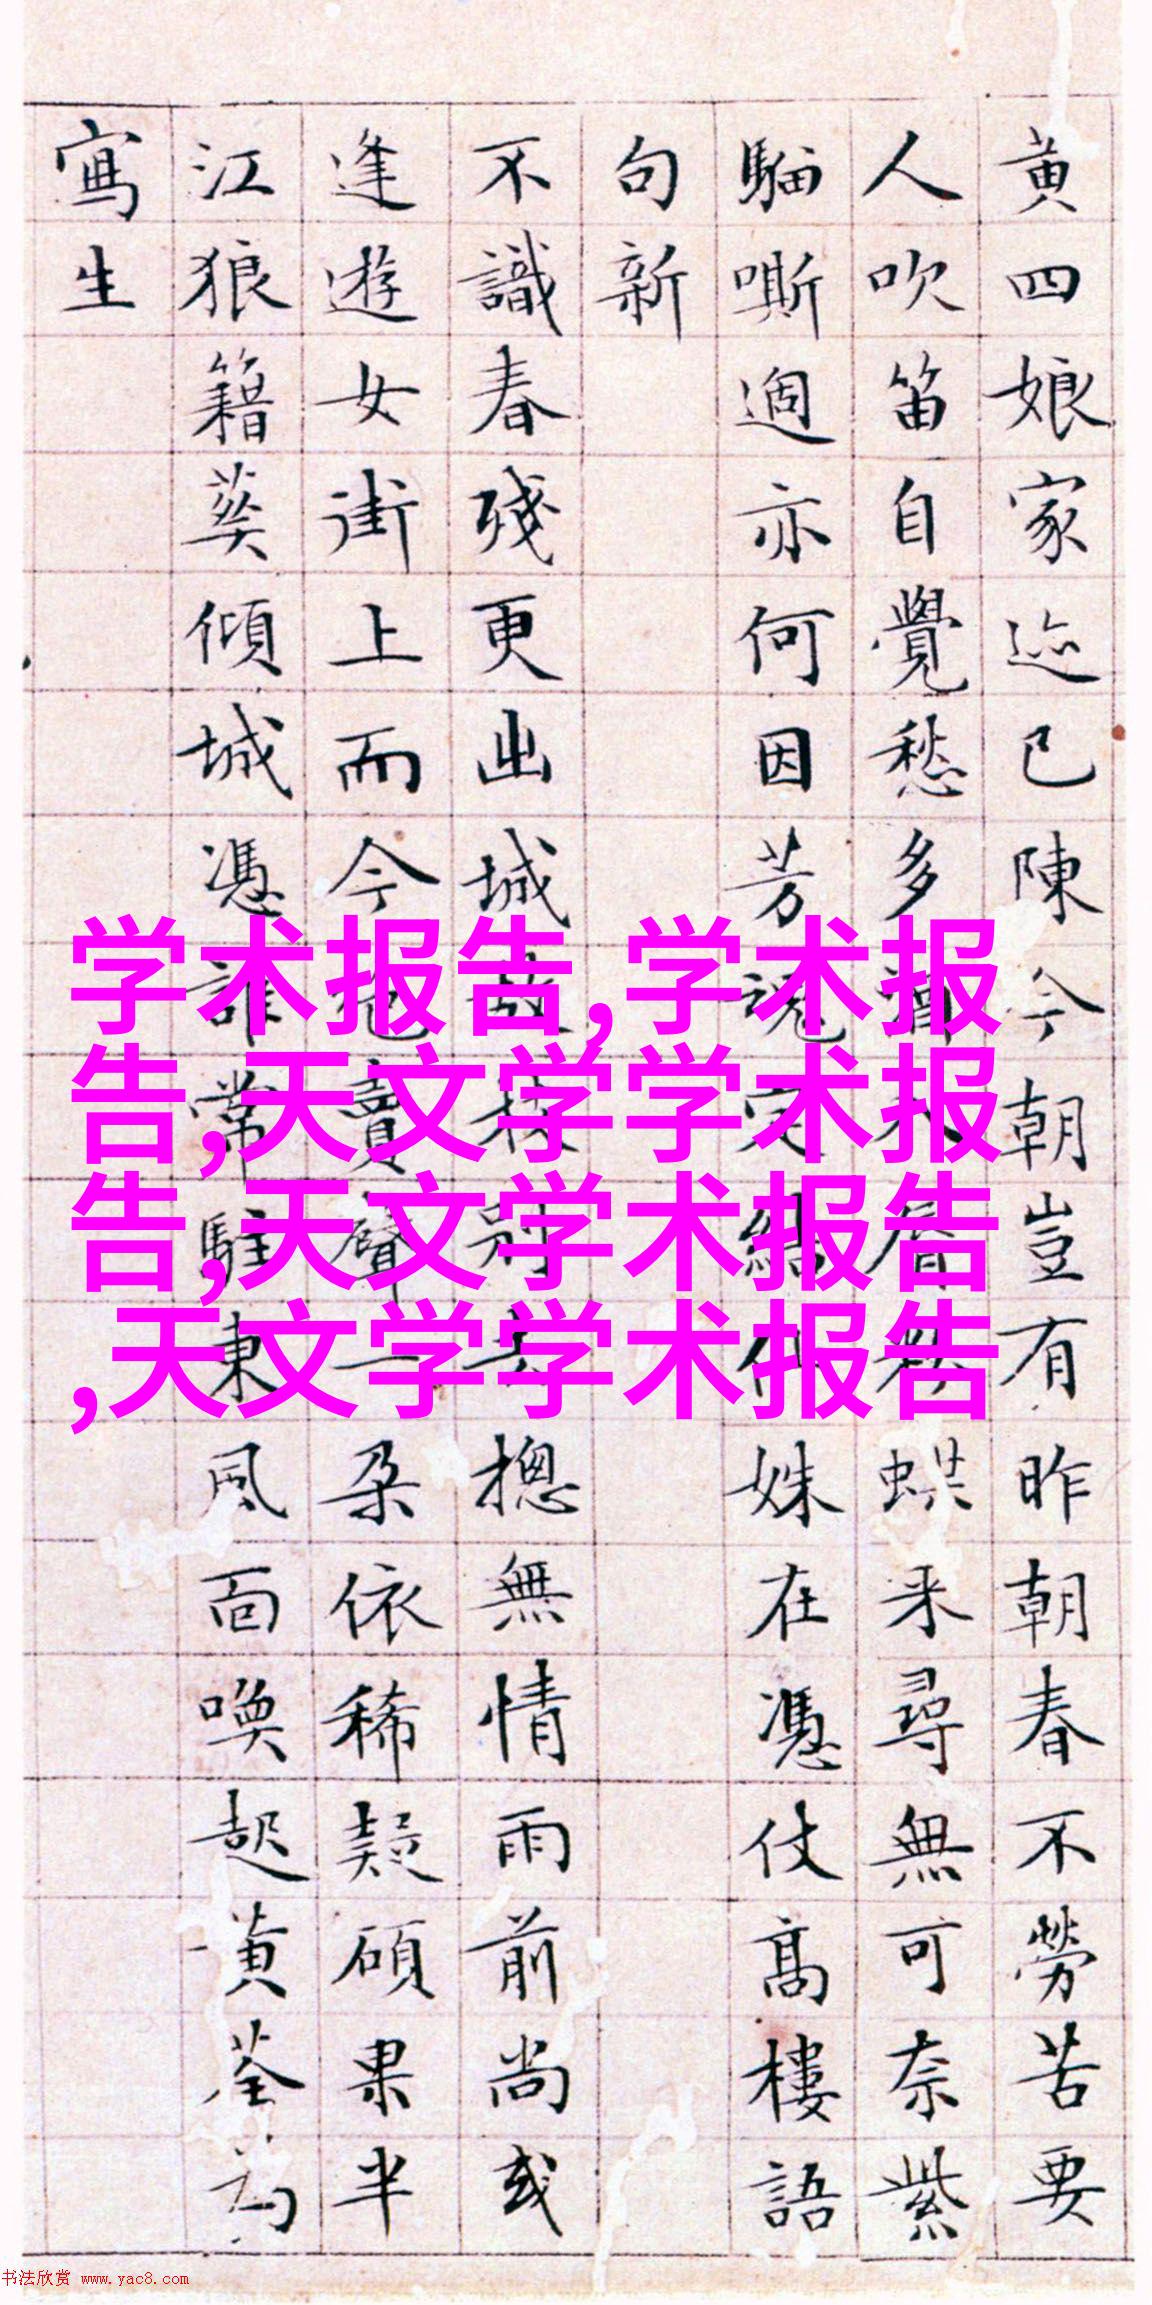 黄四娘家迹已陳今朝豈有昨朝春不勞苦要
人吹笛自覺愁多来尋無可奈紫
騮嘶過亦何因芳魂定結姝在憑仗高樓語
句新
不識春殘更出城枝別摠無情雨前尚或
逢遊女街上而今賣聲一朵依稀疑碩果半
江狼籍葬傾城憑誰常駐東風面喚起黄荃為
寫生
学术报告,学术报
告,天文学学术报
告,天文学术报告
,天文学学术报告
书法欣赏 www.yac8.com